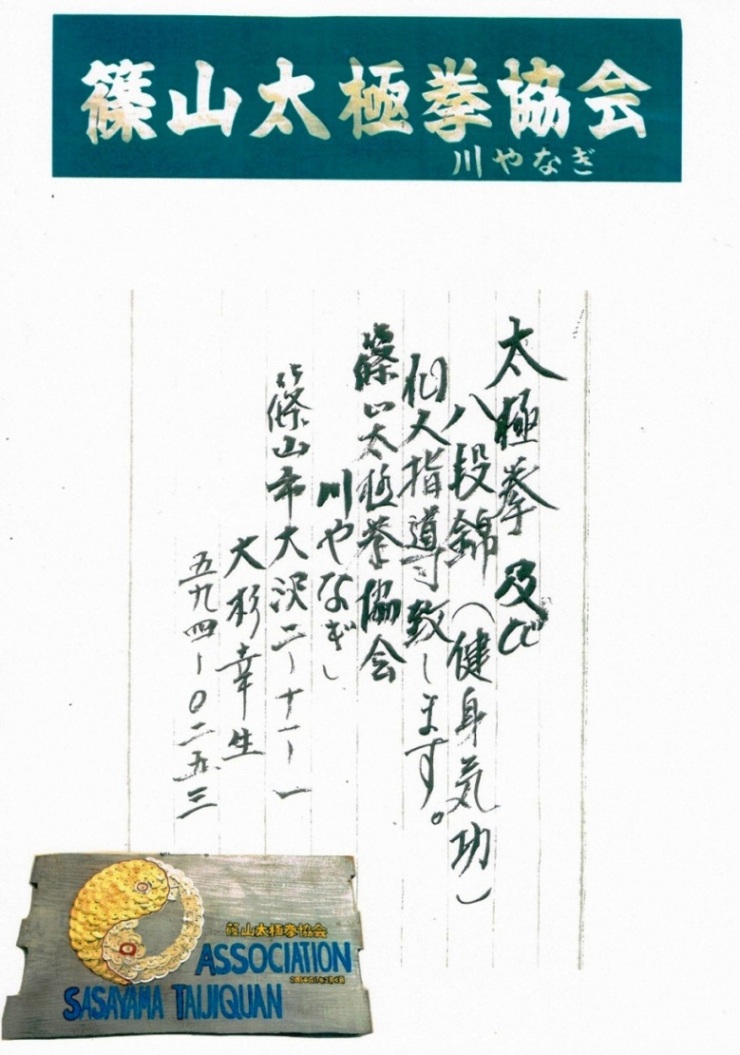 篠山太極拳協会
川やなぎ
太極拳及び
八段錦(健身気功)
個人指導致します。
篠山太極拳協会
川やなぎ
篠山市大沢二ー十一ー一
大杉幸生
五九四ー〇二五三
篠山太極拳協会
ASSOCIATION
SASAYAMA TAIJIQUAN